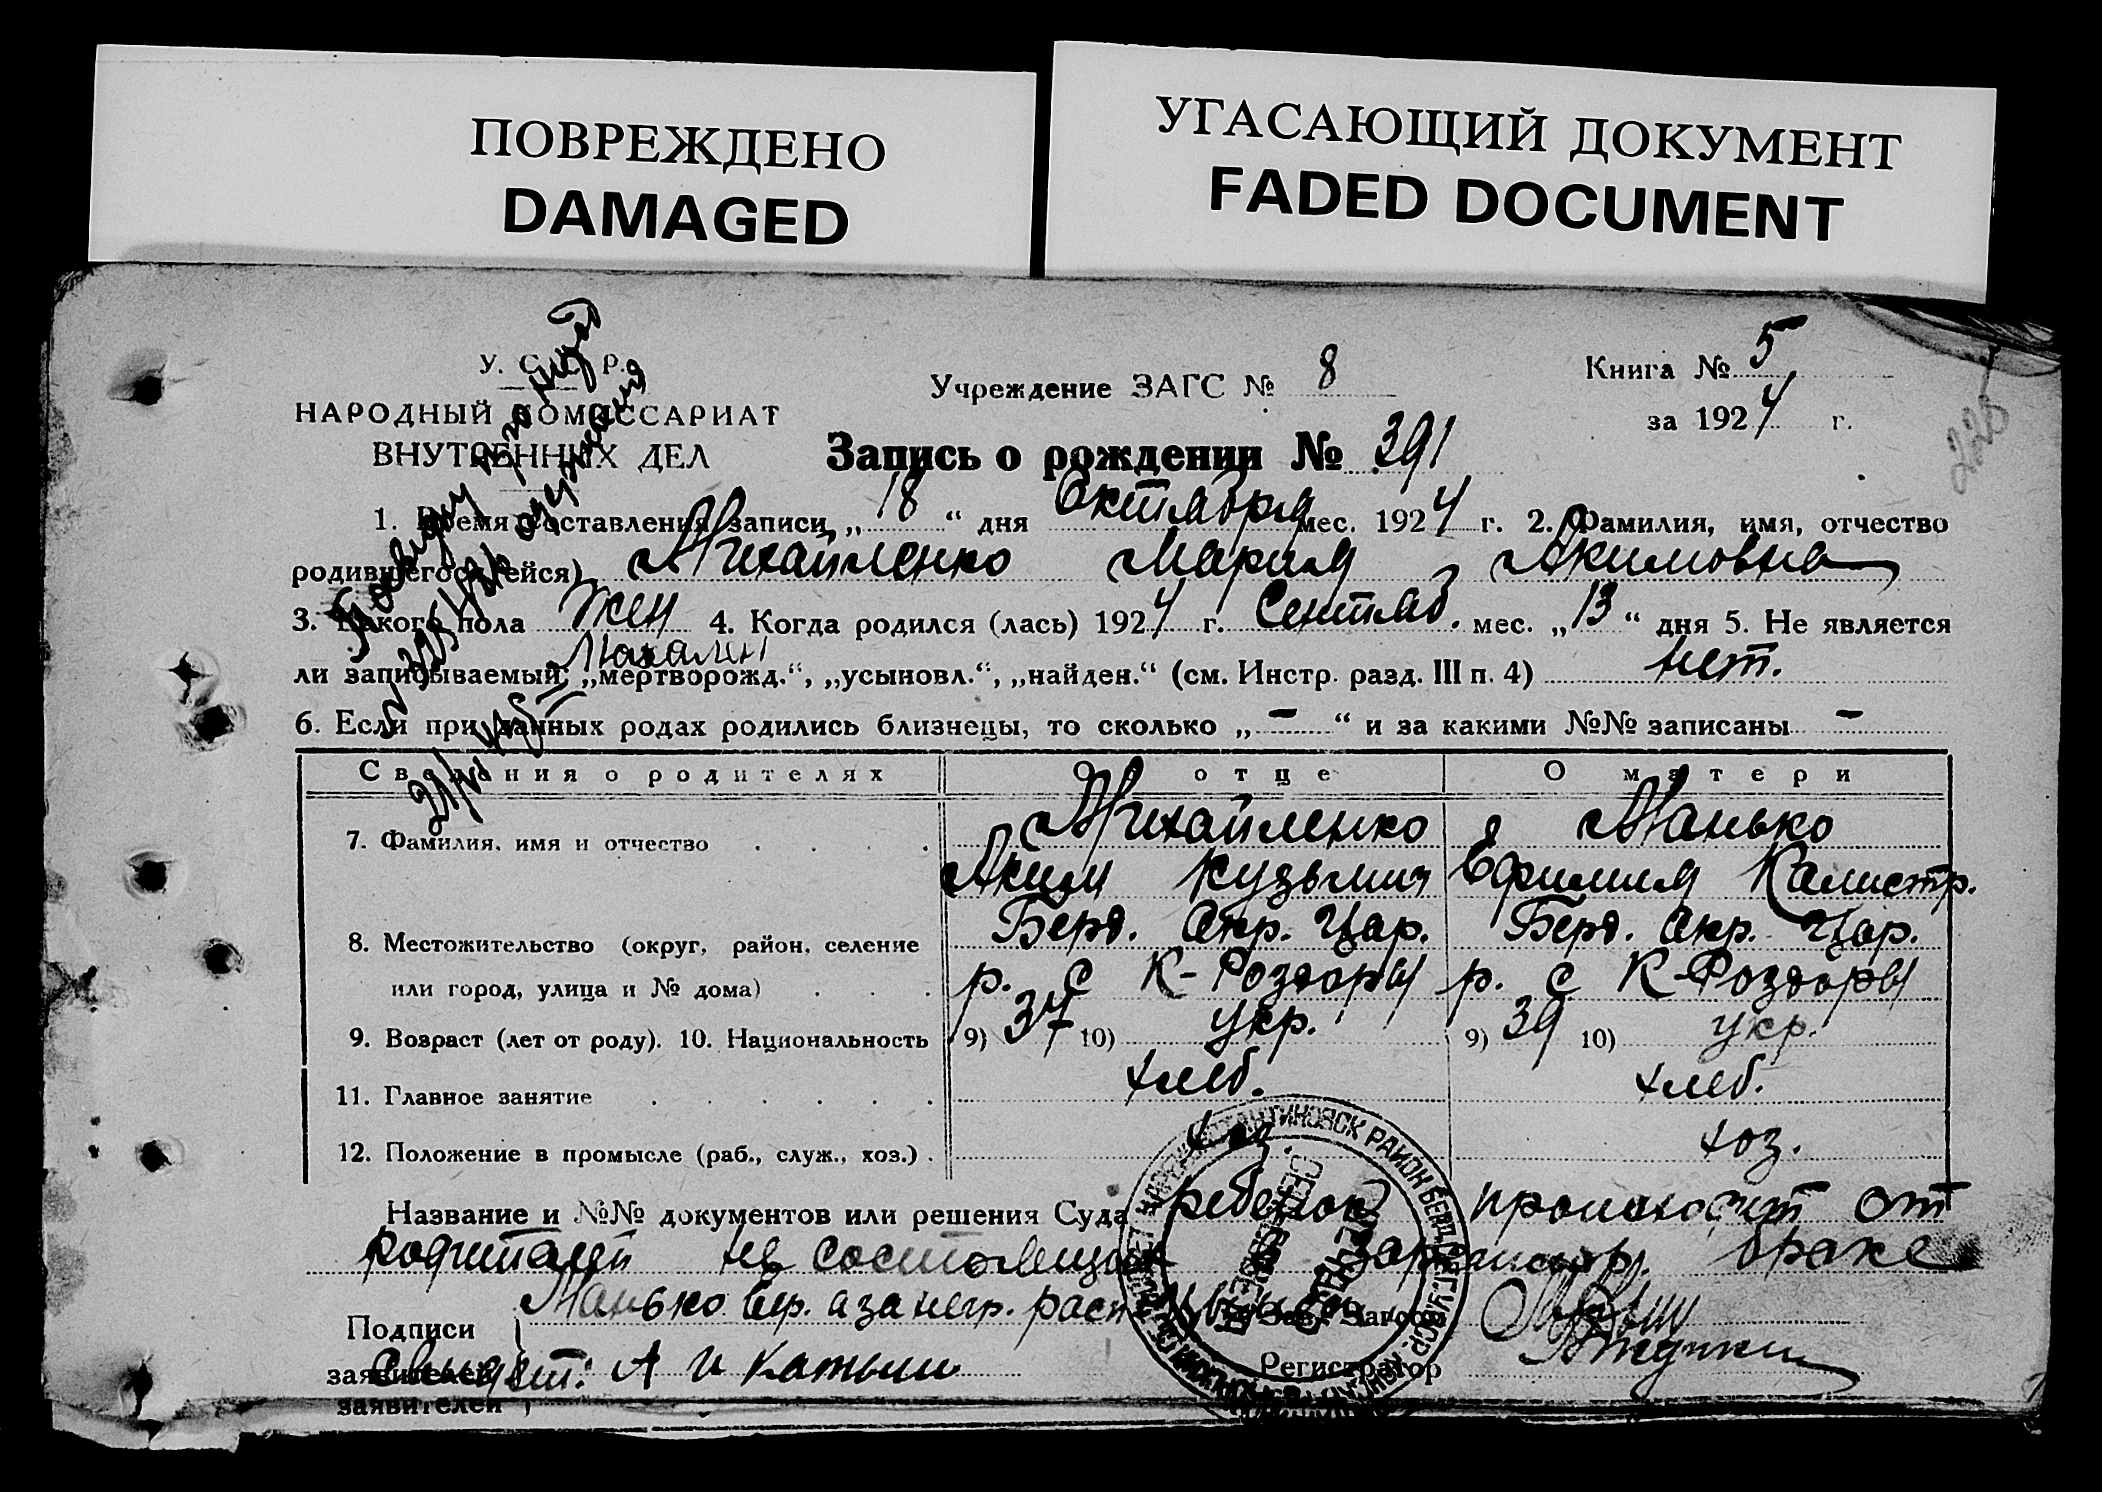 ПОВРЕЖДЕНО
DAMAGED
УГАСАЮЩИЙ ДОКУМЕНТ
FADED DOCUMENT
У. С. С. Р.
НАРОДНЫЙ КОМИССАРИАТ
ВНУТРЕННИХ ДЕЛ
Учреждение ЗАГС № 8
Книга № 5
за 1924 г.
228
Запись о рождении № 391
1. Время составления записи „18“ дня Октября мес. 1924 г. 2. Фамилия, имя, отчество
родившегося(ейся) Михайленко Мария Акимовна
3. Какого пола Жен 4. Когда родился (лась) 1924 г. Сентяб. мес. „13“ дня 5. Не является
ли записываемый: „мертворожд.“, „усыновл.“, „найден.“ (см. Инстр. разд. III п. 4) нет.
6. Если при данных родах родились близнецы, то сколько „ – “ и за какими №№ записаны –
Сведения о родителях О отце О матери
7. Фамилия, имя и отчество Михайленко Манько
Аким Кузьмич Ефимия Калистр.
8. Местожительство (округ, район, селение Берд. Окр. Цар. Берд. Окр. Цар.
или город, улица и № дома) р. с К-Роздоры р. с К-Роздоры
9. Возраст (лет от роду). 10. Национальность 9) 37 10) укр. 9) 39 10) укр.
11. Главное занятие хлеб. хлеб.
12. Положение в промысле (раб., служ., хоз.) хоз. хоз.
Название и №№ документов или решения Суда ребенок происходит от
родителей не состоящих зарегистр. браке
Манько Еф. а за негр. расп.
Подписи
заявителей
Свидет: А
Зав. Загсом
Регистратор
заявителей